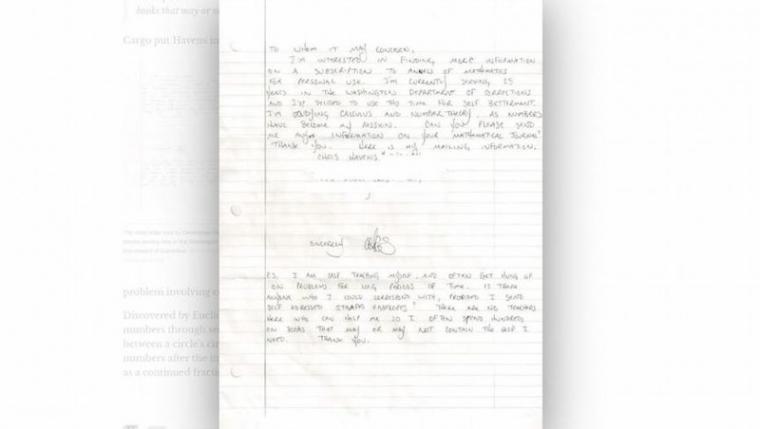 books that may or
Cargo put Havens in
TO WHOM IT MAY CONCERN,
I'M INTERESTED IN FINDING MORE INFORMATION
ON A SUBSCRIPTION TO ANNALS OF MATHEMATICS
FOR PERSONAL USE. I'M CURRENTLY SERVING 25
YEARS IN THE WASHINGTON DEPARTMENT OF CORRECTIONS
AND I'VE DECIDED TO USE THIS TIME FOR SELF BETTERMENT.
I'M STUDYING CALCULUS AND NUMBER THEORY, AS NUMBERS
HAVE BECOME MY MISSION. CAN YOU PLEASE SEND
ME ANY INFORMATION ON YOUR "MATHEMATICAL JOURNAL"
THANK YOU. HERE IS MY MAILING INFORMATION.
CHRIS HAVENS
SINCERELY
P.S. I AM SELF TEACHING MYSELF AND OFTEN GET HUNG UP
ON PROBLEMS FOR LONG PERIODS OF TIME. IS THERE
ANYONE WHO I COULD CORRESPOND WITH, PROVIDED I SEND
SELF ADDRESSED STAMPED ENVELOPES? THERE ARE NO TEACHERS
HERE WHO CAN HELP ME SO I OFTEN SPEND HUNDREDS
ON BOOKS THAT MAY OR MAY NOT CONTAIN THE HELP I
NEED. THANK YOU.
problem involving
Discovered by
numbers through
between a circle's
numbers after the
as a continued